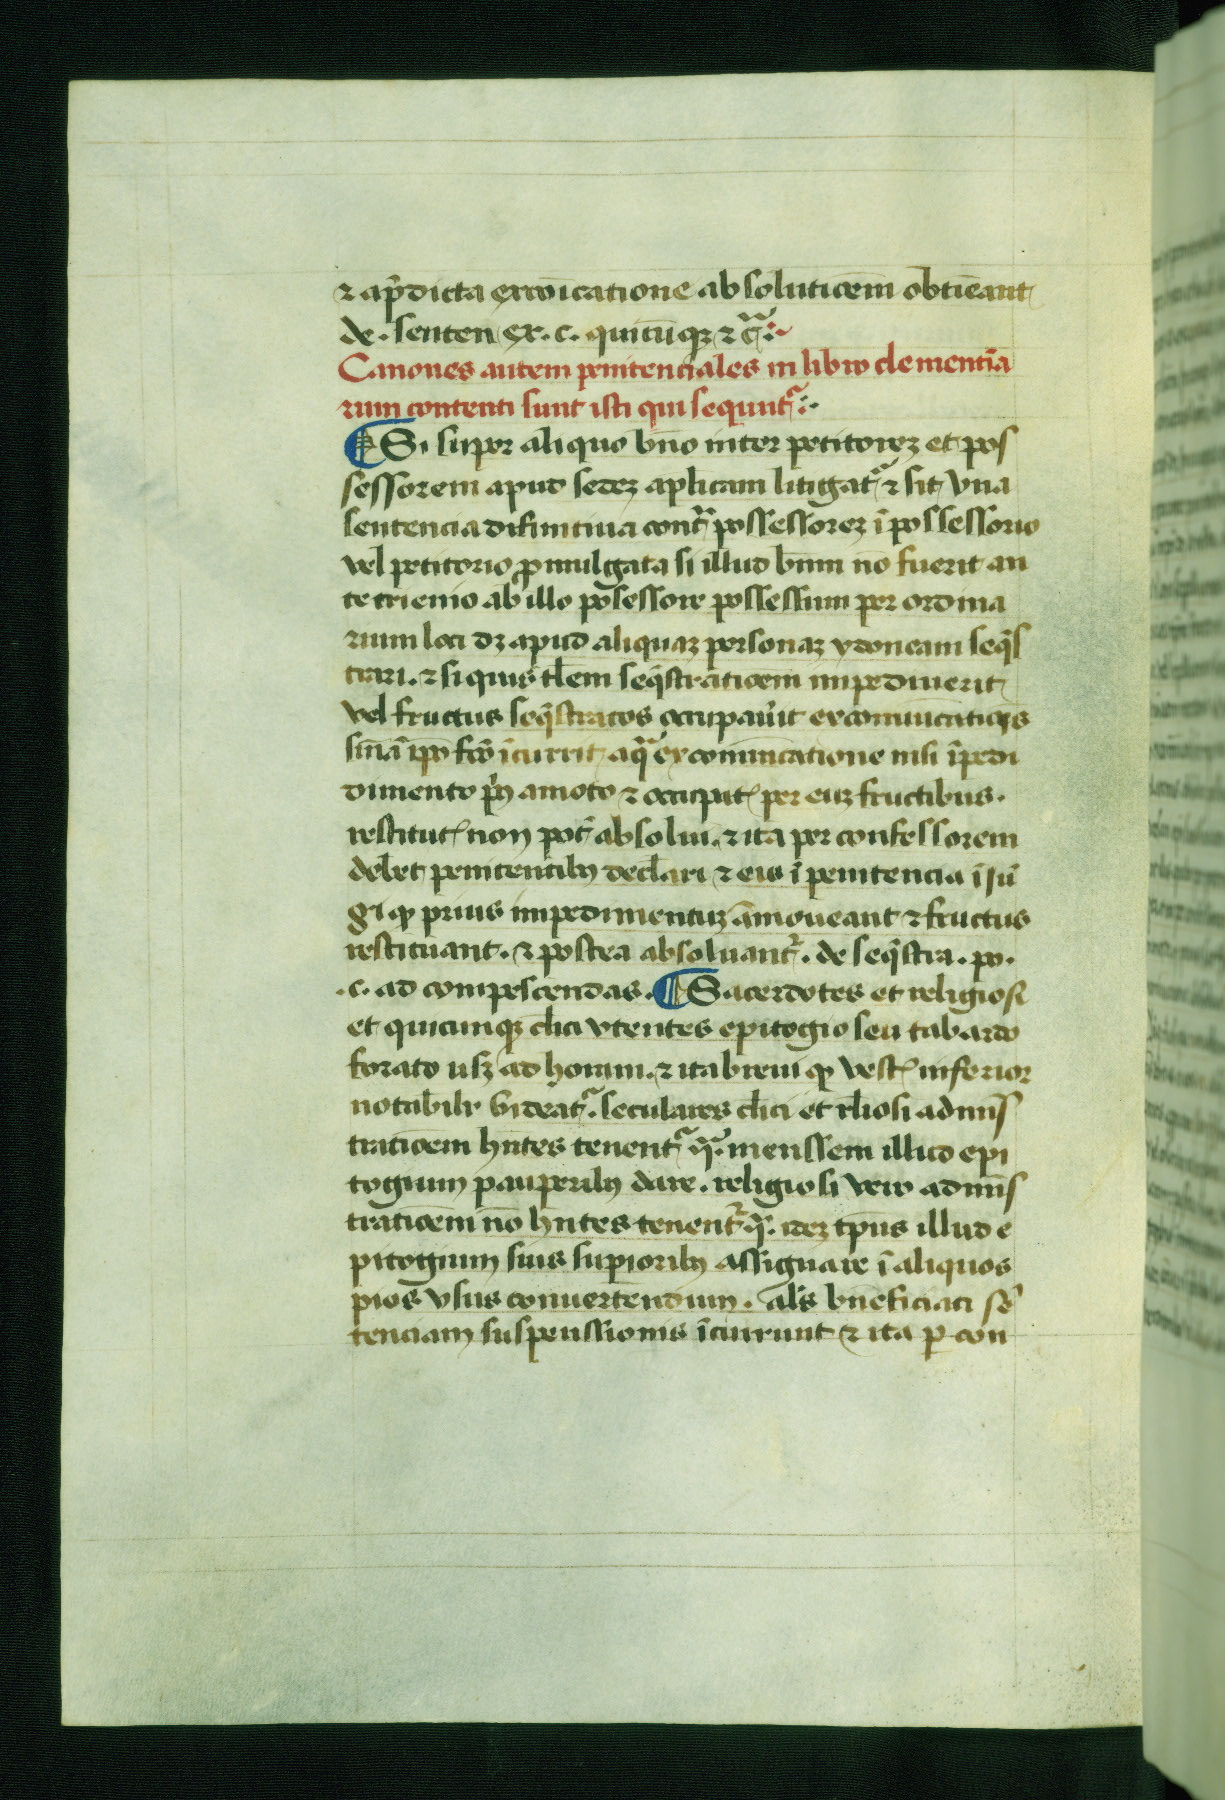 ⁊ ap̃dicta exco͞icatione absolutiõem obtiẽant
de. senten ex. c. quicũqꝫ ⁊ cᷓ.
Canones autem penitenciales in libro clementiã
rum contenti sunt isti qui sequntᷣ.
¶ Si super aliquo bñо inter petitoreꝫ et pos
sessorem apud sedeꝫ aplicam litigatᷣ ⁊ sit vna
sentencia difinitiua contᷓ possessoreꝫ ĩ possessorio
vel petitorio ꝓmulgata si illud bnm nõ fuerit an
te trienio ab illo possessore possessum per ordina
rium loci dꝫ apud aliquaꝫ personaꝫ ydoneam seq̃s
trari. ⁊ si quis tlem seq̃stratiõem impediuerit
vel fructus seq̃stratos occupaũit excomũicatiõis
sniãꝫ ip̃o fc̃o ĩcurrit aqᷓ excomũicatione nisi ĩpedi
dimento p̃ꝰ amoto ⁊ occupat̃ per euꝫ fructibus.
restitut̃ non pot̃ absolui. ⁊ ita per confessorem
debet penitentibꝰ declari ⁊ eis ĩ penitencia ĩiũ
gi ꝙ prius impedimentuꝫ amoueant ⁊ fructus
restituant. ⁊ postea absoluantᷣ. de seq̃stra. po.
.c. ad compescendas. ¶ Sacerdotes et religiosi
et quicunqꝫ clici vtentes epitogio seu tabardo
forato usqꝫ ad horam. ⁊ ita breui ꝙ vest̃ inferior
notabilr videatᷣ. seculares clici et rliosi admĩs
tratiõem hñtes tenentᷣ ᷓ. menssem illud epi
togium pauperibꝰ dare. religiosi vero admĩs
tratiõem nõ hñtes tenentᷣ ᷓ. ideꝫ tp̃us illud e
pitogium suis superioribꝰ assignare ĩ aliquos
pios vsus conuertendum. al̃s bñeficiati sẽ
tenciam suspenssionis ĩcurrunt ⁊ ita ꝑ con